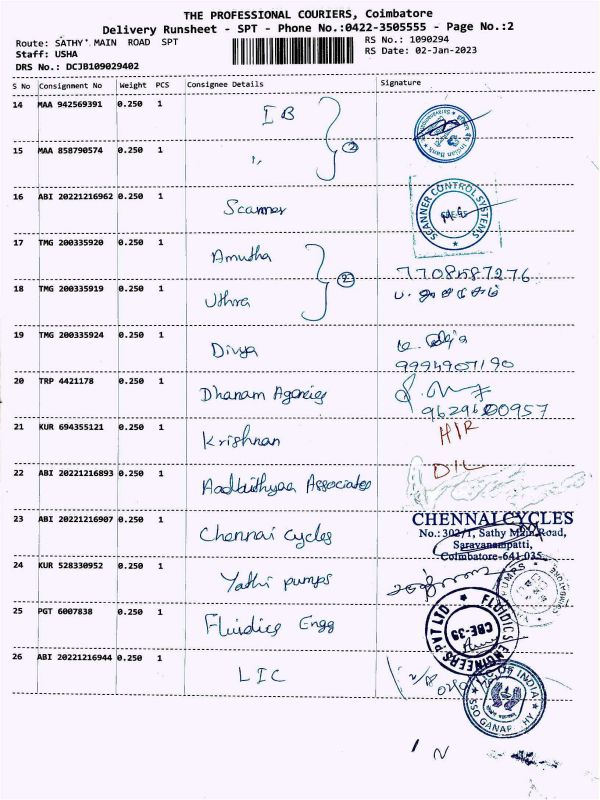 THE PROFESSIONAL COURIERS, Coimbatore
Delivery Runsheet - SPT - Phone No.:0422-3505555 - Page No.:2
Route: SATHY MAIN ROAD SPT
RS No.: 1090294
Staff: USHA
RS Date: 02-Jan-2023
DRS No.: DCJB109029402
S No Consignment No Weight PCS Consignee Details Signature
14 MAA 942569391 0.250 1 IB
Indian Bank
2
15 MAA 858790574 0.250 1 ,,
16 ABI 20221216962 0.250 1 Scanner
SCANNER CONTROL SYSTEMS
17 TMG 200335920 0.250 1 Amutha
7708587276
2
18 TMG 200335919 0.250 1 Uthra
19 TMG 200335924 0.250 1 Divya
9994907190
20 TRP 4421178 0.250 1 Dhanam Agencies
9629600957
21 KUR 694355121 0.250 1 Krishnan
22 ABI 20221216893 0.250 1 Aadhithyaa Associates
D/L
23 ABI 20221216907 0.250 1 Chennai Cycles
CHENNAI CYCLES
No.: 302/1, Sathy Main Road,
Saravanampatti,
Coimbatore-641 035.
24 KUR 528330952 0.250 1 Yathi pumps
25 PGT 6007838 0.250 1 Fluidics Engg
FLUIDICS ENGINEERS PVT LTD
CBE-35
26 ABI 20221216944 0.250 1 LIC
LIC OF INDIA
N